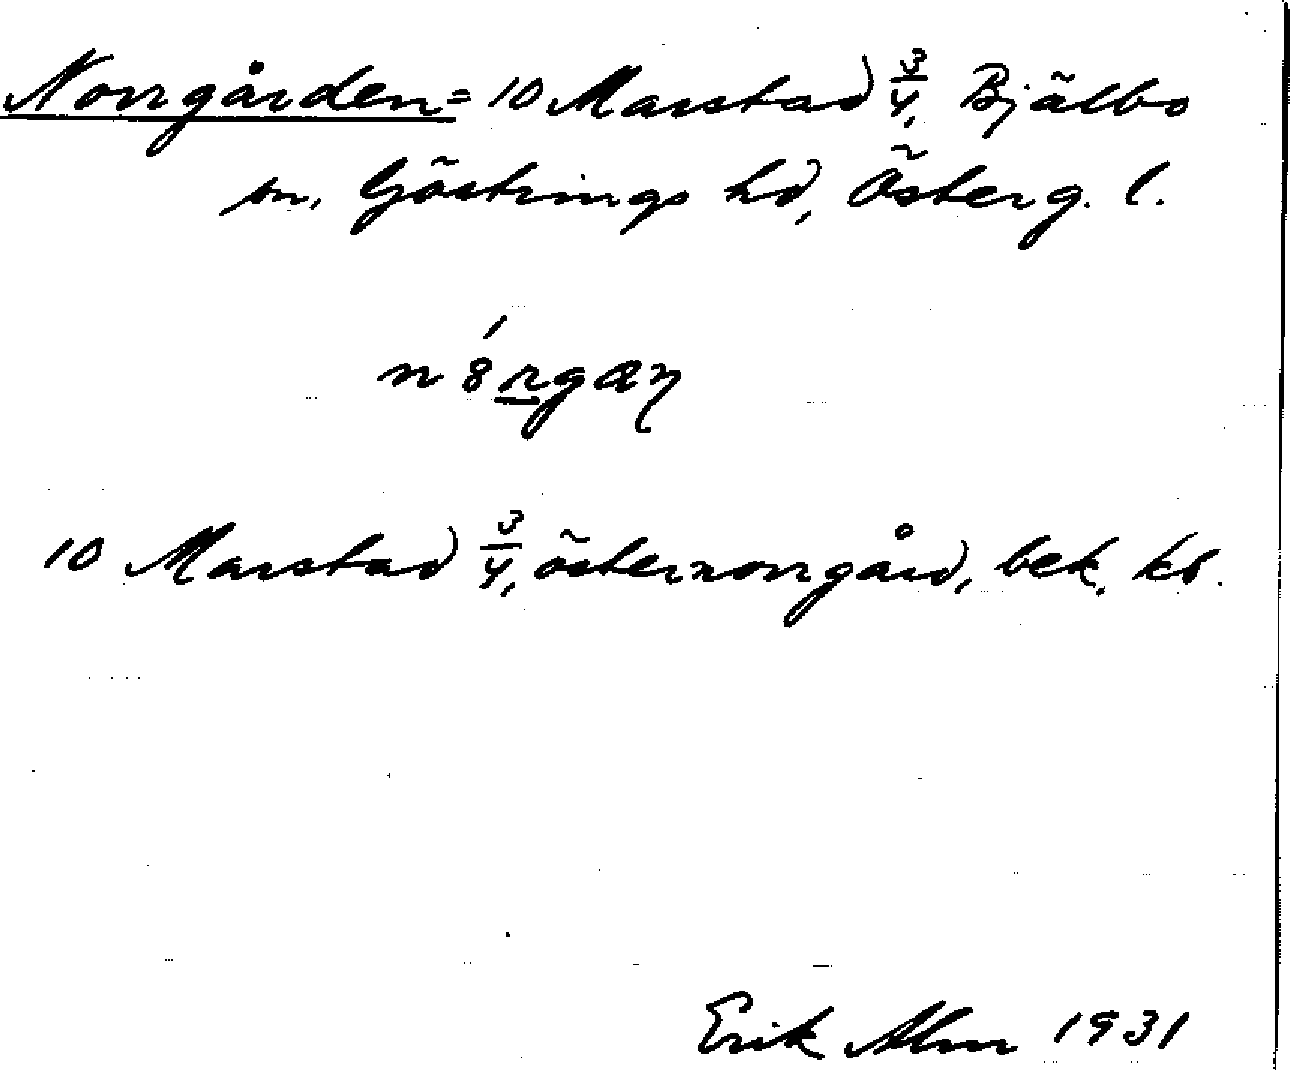 Norrgården = 10 Marstad 3/4, Bjälbo
sn, Göstrings hd, Österg. l.
10 Marstad 3/4, östernorrgård, bek. kb.
Erik Alm 1931